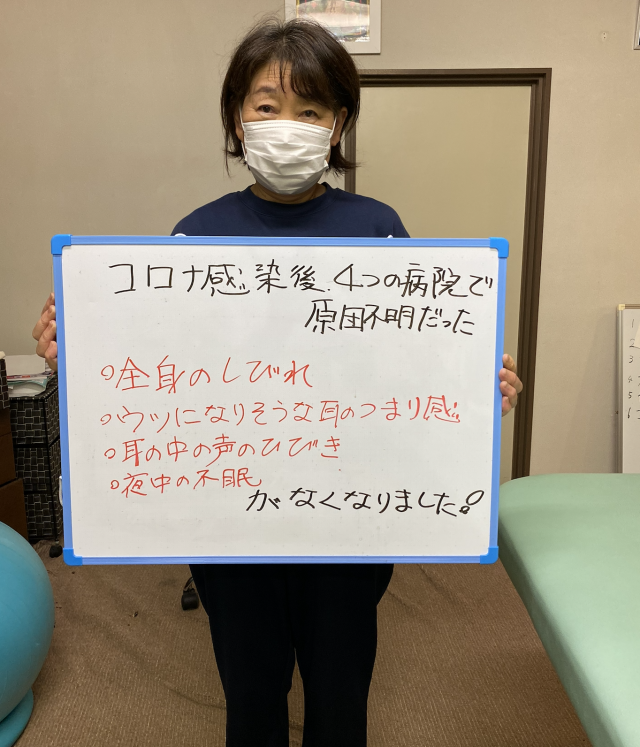 コロナ感染後、4つの病院で
原因不明だった
○全身のしびれ
○ウツになりそうな耳のつまり感
○耳の中の声のひびき
○夜中の不眠
がなくなりました!
1
2
3
4
5
6